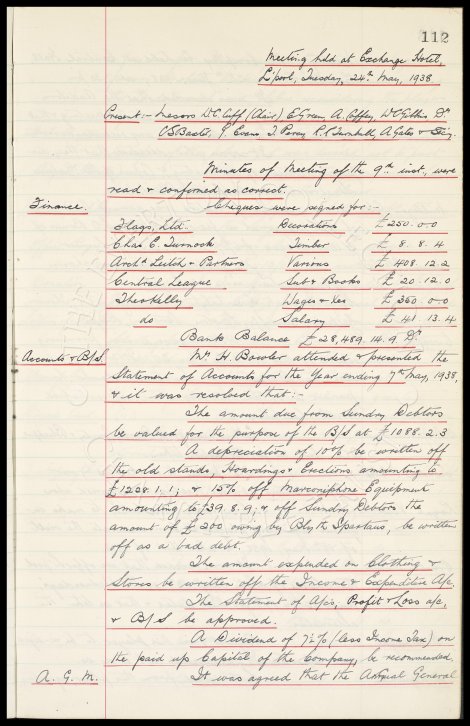 112
Meeting held at Exchange Hotel,
L'pool, Tuesday, 24th May, 1938
Present:- Messrs W.C. Cuff (Chair) E. Green, A. Coffey, W.C. Gibbins Dr
C.S. Baxter, J. Evans, T. Percy, R.R. Turnbull, A. Gates & Secy.
Minutes of Meeting of the 9th inst, were
read & confirmed as correct.
Finance. Cheques were signed for:-
Flags, Ltd. Decorations £250.0.0
Chas E. Turnock Timber £ 8.8.4
Archd Leitch & Partners Various £ 408.12.2
Central League Subs & Books £ 20.12.0
Theo Kelly Wages & Exs £ 360.0.0
do Salary £ 41.13.4
Bank Balance £ 28,489.14.9 Dr
Accounts & B/S. Mr H. Bowler attended & presented the
Statement of Accounts for the Year ending 7th May, 1938,
& it was resolved that:-
The amount due from Sundry Debtors
be valued for the purpose of the B/S at £1088.2.3
A depreciation of 10% be written off
the old stands, Hoardings & Erections amounting to
£1208.1.1; & 15% off Marconiphone Equipment
amounting to £39.8.9; & off Sundry Debtors the
amount of £200 owing by Blyth Spartans, be written
off as a bad debt.
The amount expended on Clothing &
Stores be written off the Income & Expenditure A/c.
The Statement of A/cs, Profit & Loss a/c,
& B/S be approved.
A Dividend of 7½% (less Income Tax) on
the paid up Capital of the Company, be recommended.
A.G.M. It was agreed that the Annual General